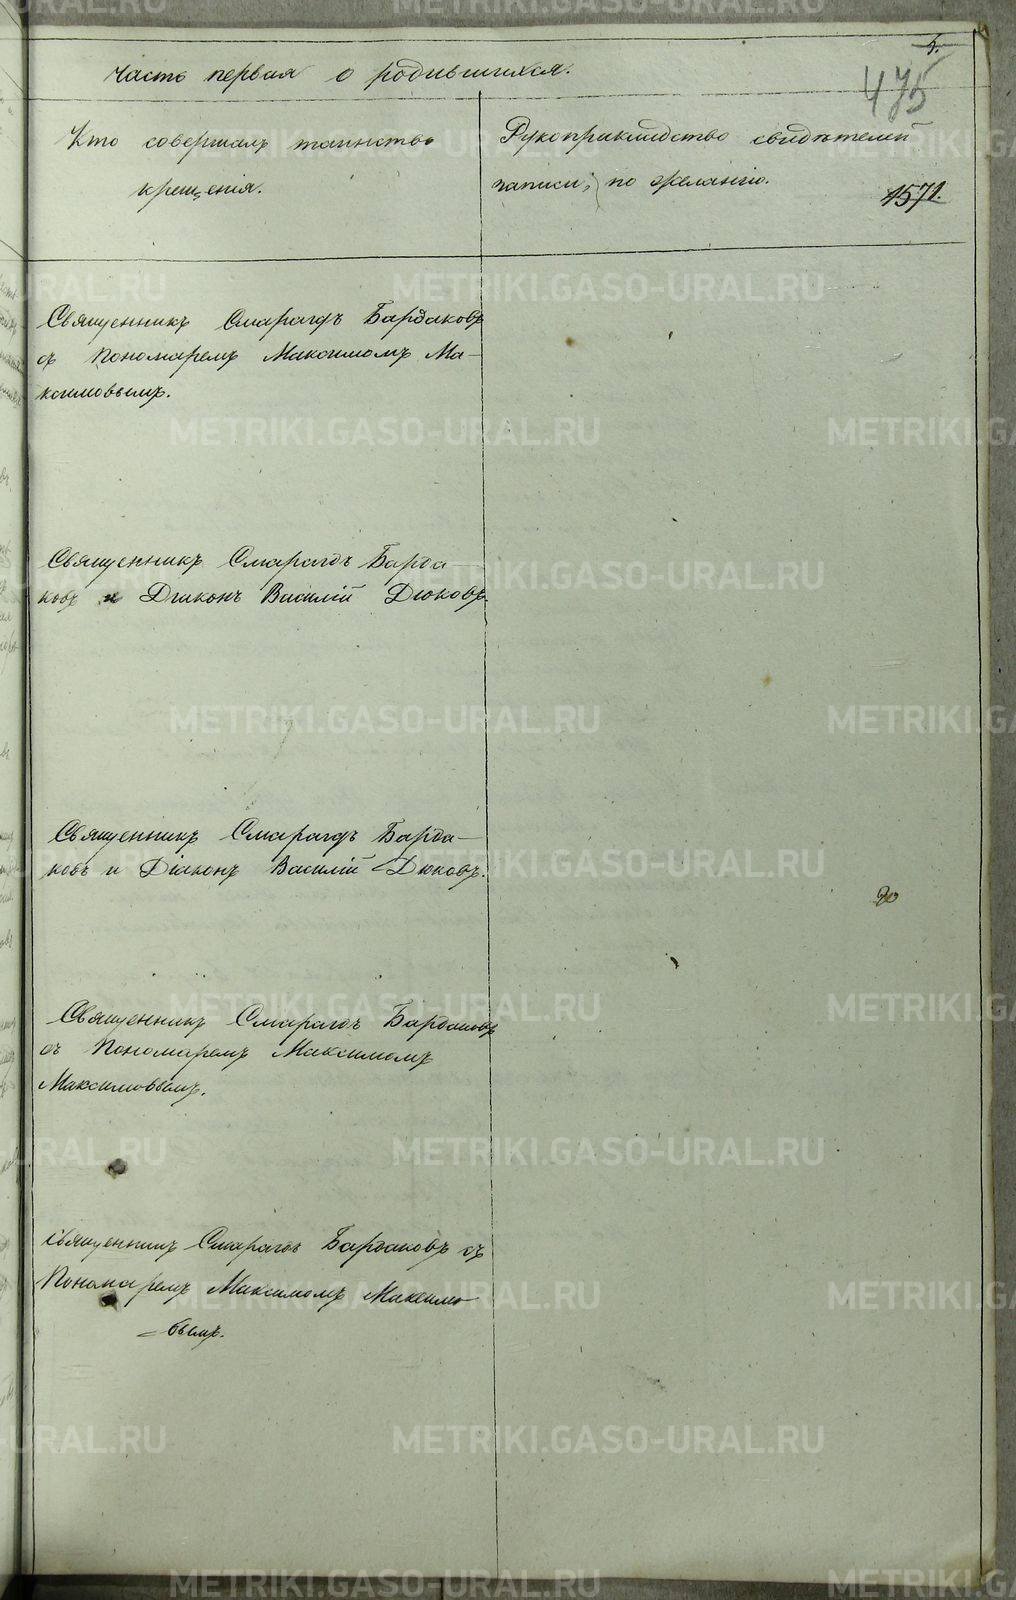 5.
Часть первая о родившихся.
475
Кто совершалъ таинство
крещенія.
Рукоприкладство свидѣтелей
записи, по желанію.
1571.
Священникъ Смарагдъ Бардаковъ
съ Пономаремъ Максимомъ Ма-
ксимовымъ.
Священникъ Смарагдъ Барда-
ковъ и Діаконъ Василій Дюковъ.
Священникъ Смарагдъ Барда-
ковъ и Діаконъ Василій Дюковъ.
Священникъ Смарагдъ Бардаковъ
съ Пономаремъ Максимомъ
Максимовымъ.
Священникъ Смарагдъ Бардаковъ съ
Пономаремъ Максимомъ Максимо
-вымъ.
METRIKI.GASO-URAL.RU